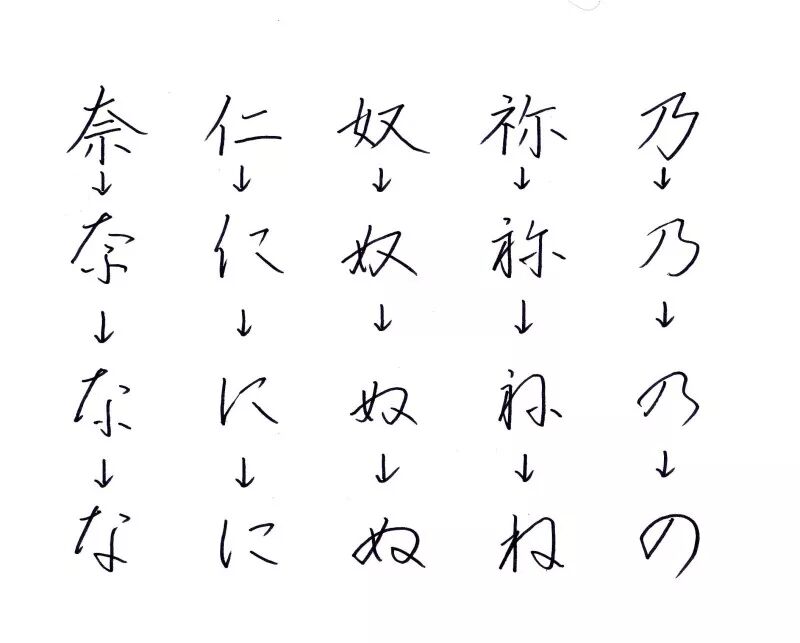 奈 仁 奴 祢 乃
↓ ↓ ↓ ↓ ↓
奈 仁 奴 祢 乃
↓ ↓ ↓ ↓ ↓
な に 奴 祢 乃
↓ ↓ ↓ ↓ ↓
な に ぬ ね の